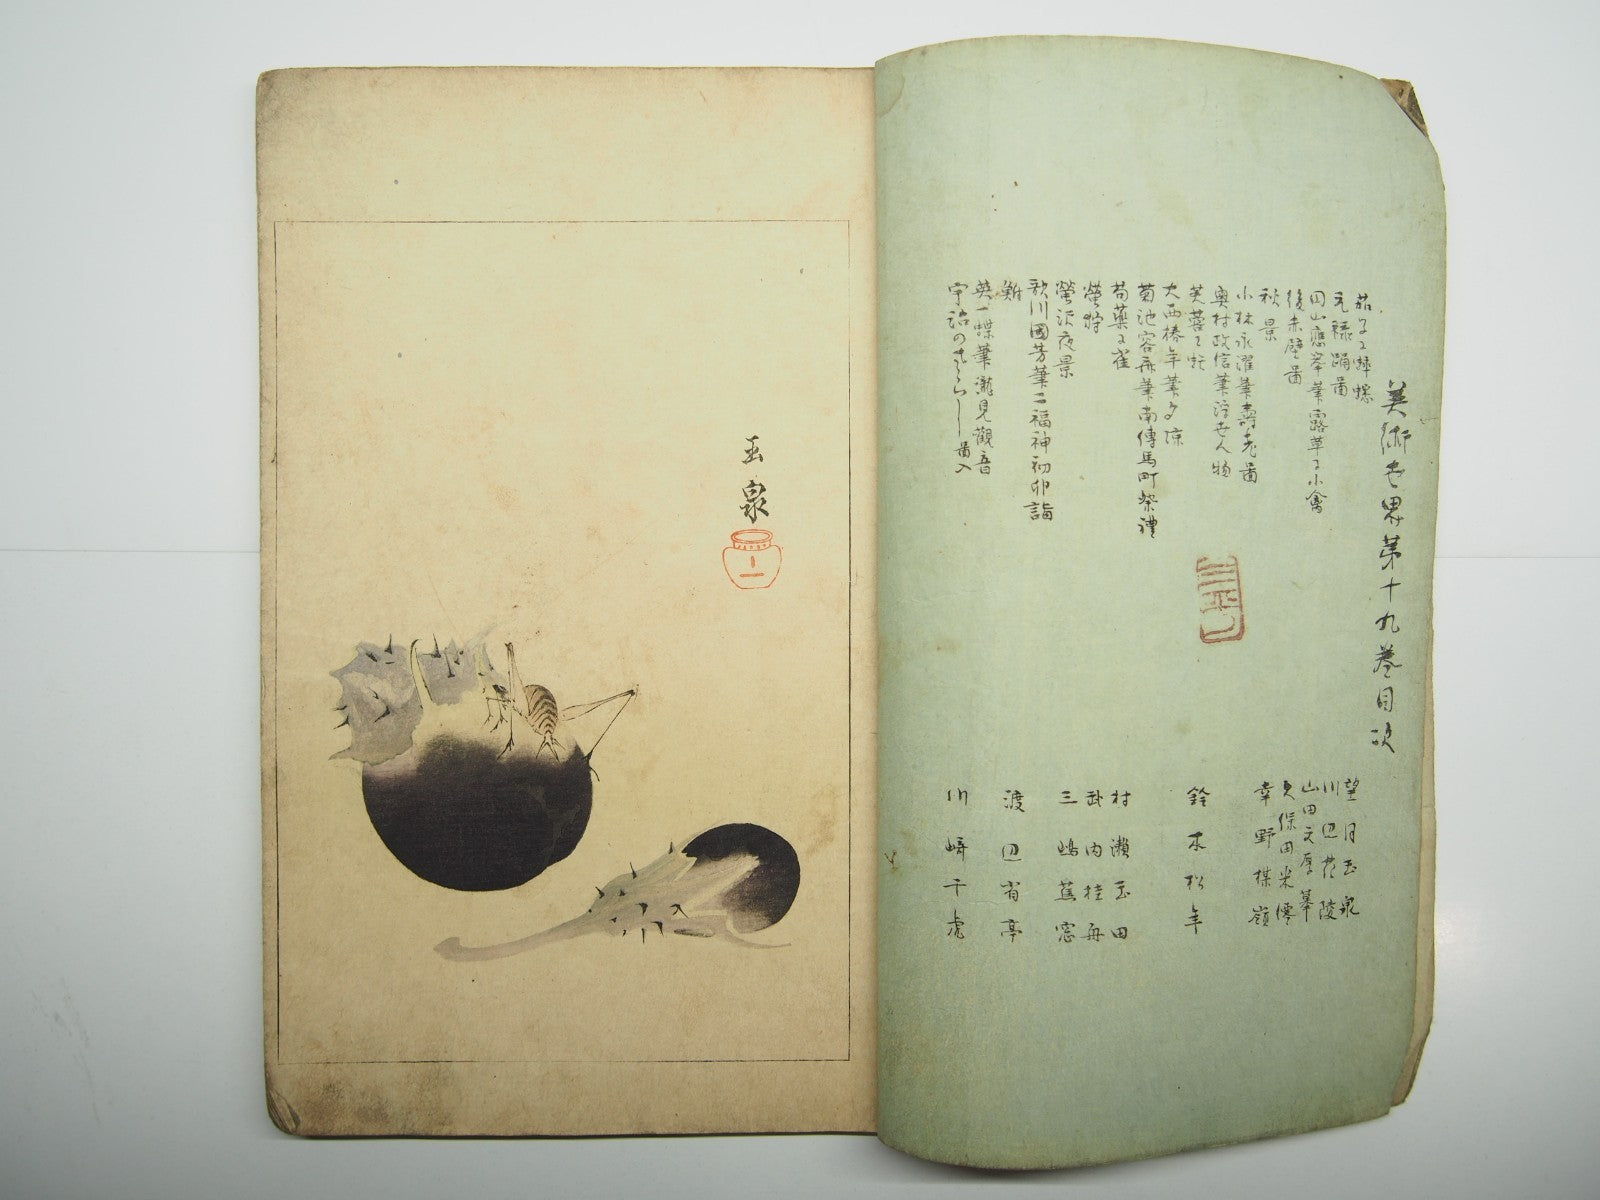 美術世界第十九巻目次
茄子ニ蟋蟀
元禄踊圖
円山應挙筆露草ニ小禽
後赤壁圖
秋景
小林永濯筆壽老圖
奥村政信筆浮世人物
芙蓉ニ虻
大西椿年筆夕涼
菊池容斎筆南傳馬町祭禮
芍薬ニ雀
螢狩
螢沢夜景
歌川國芳筆二福神初卯詣
雞
英一蝶筆瀧見觀音
宇治のさらし圖入
望月玉泉
川辺花陵
山田文厚摹
久保田米僊
幸野楳嶺
鈴木松年
村瀬玉田
武内桂舟
三嶋蕉窓
渡辺省亭
川崎千虎
玉泉